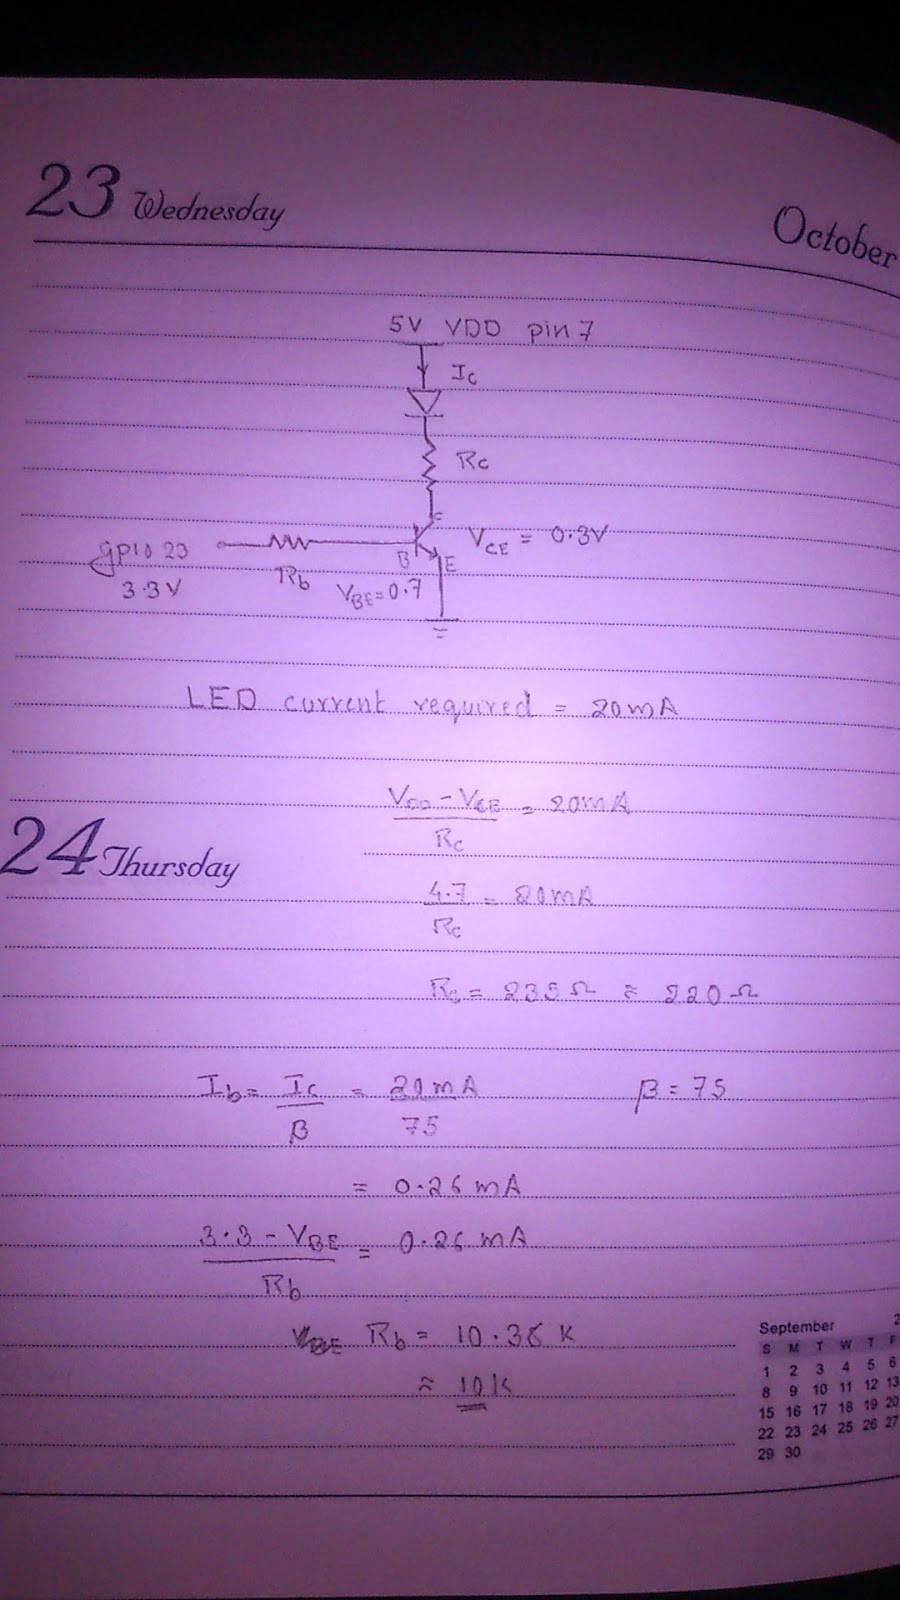 23 Wednesday
October
5V VDD pin 7
Ic
Rc
C
gpio 23
3.3V
Rb
B
E
VBE=0.7
VCE = 0.3V
LED current required = 20mA
VDD - VCE = 20mA
Rc
24 Thursday
4.7 = 20mA
Rc
Rc = 235Ω ≈ 220Ω
Ib = Ic = 20mA
β 75
β = 75
= 0.26 mA
3.3 - VBE = 0.26 mA
Rb
Rb = 10.36 K
≈ 10K
September 2
S M T W T F
1 2 3 4 5 6
8 9 10 11 12 13
15 16 17 18 19 20
22 23 24 25 26 27
29 30